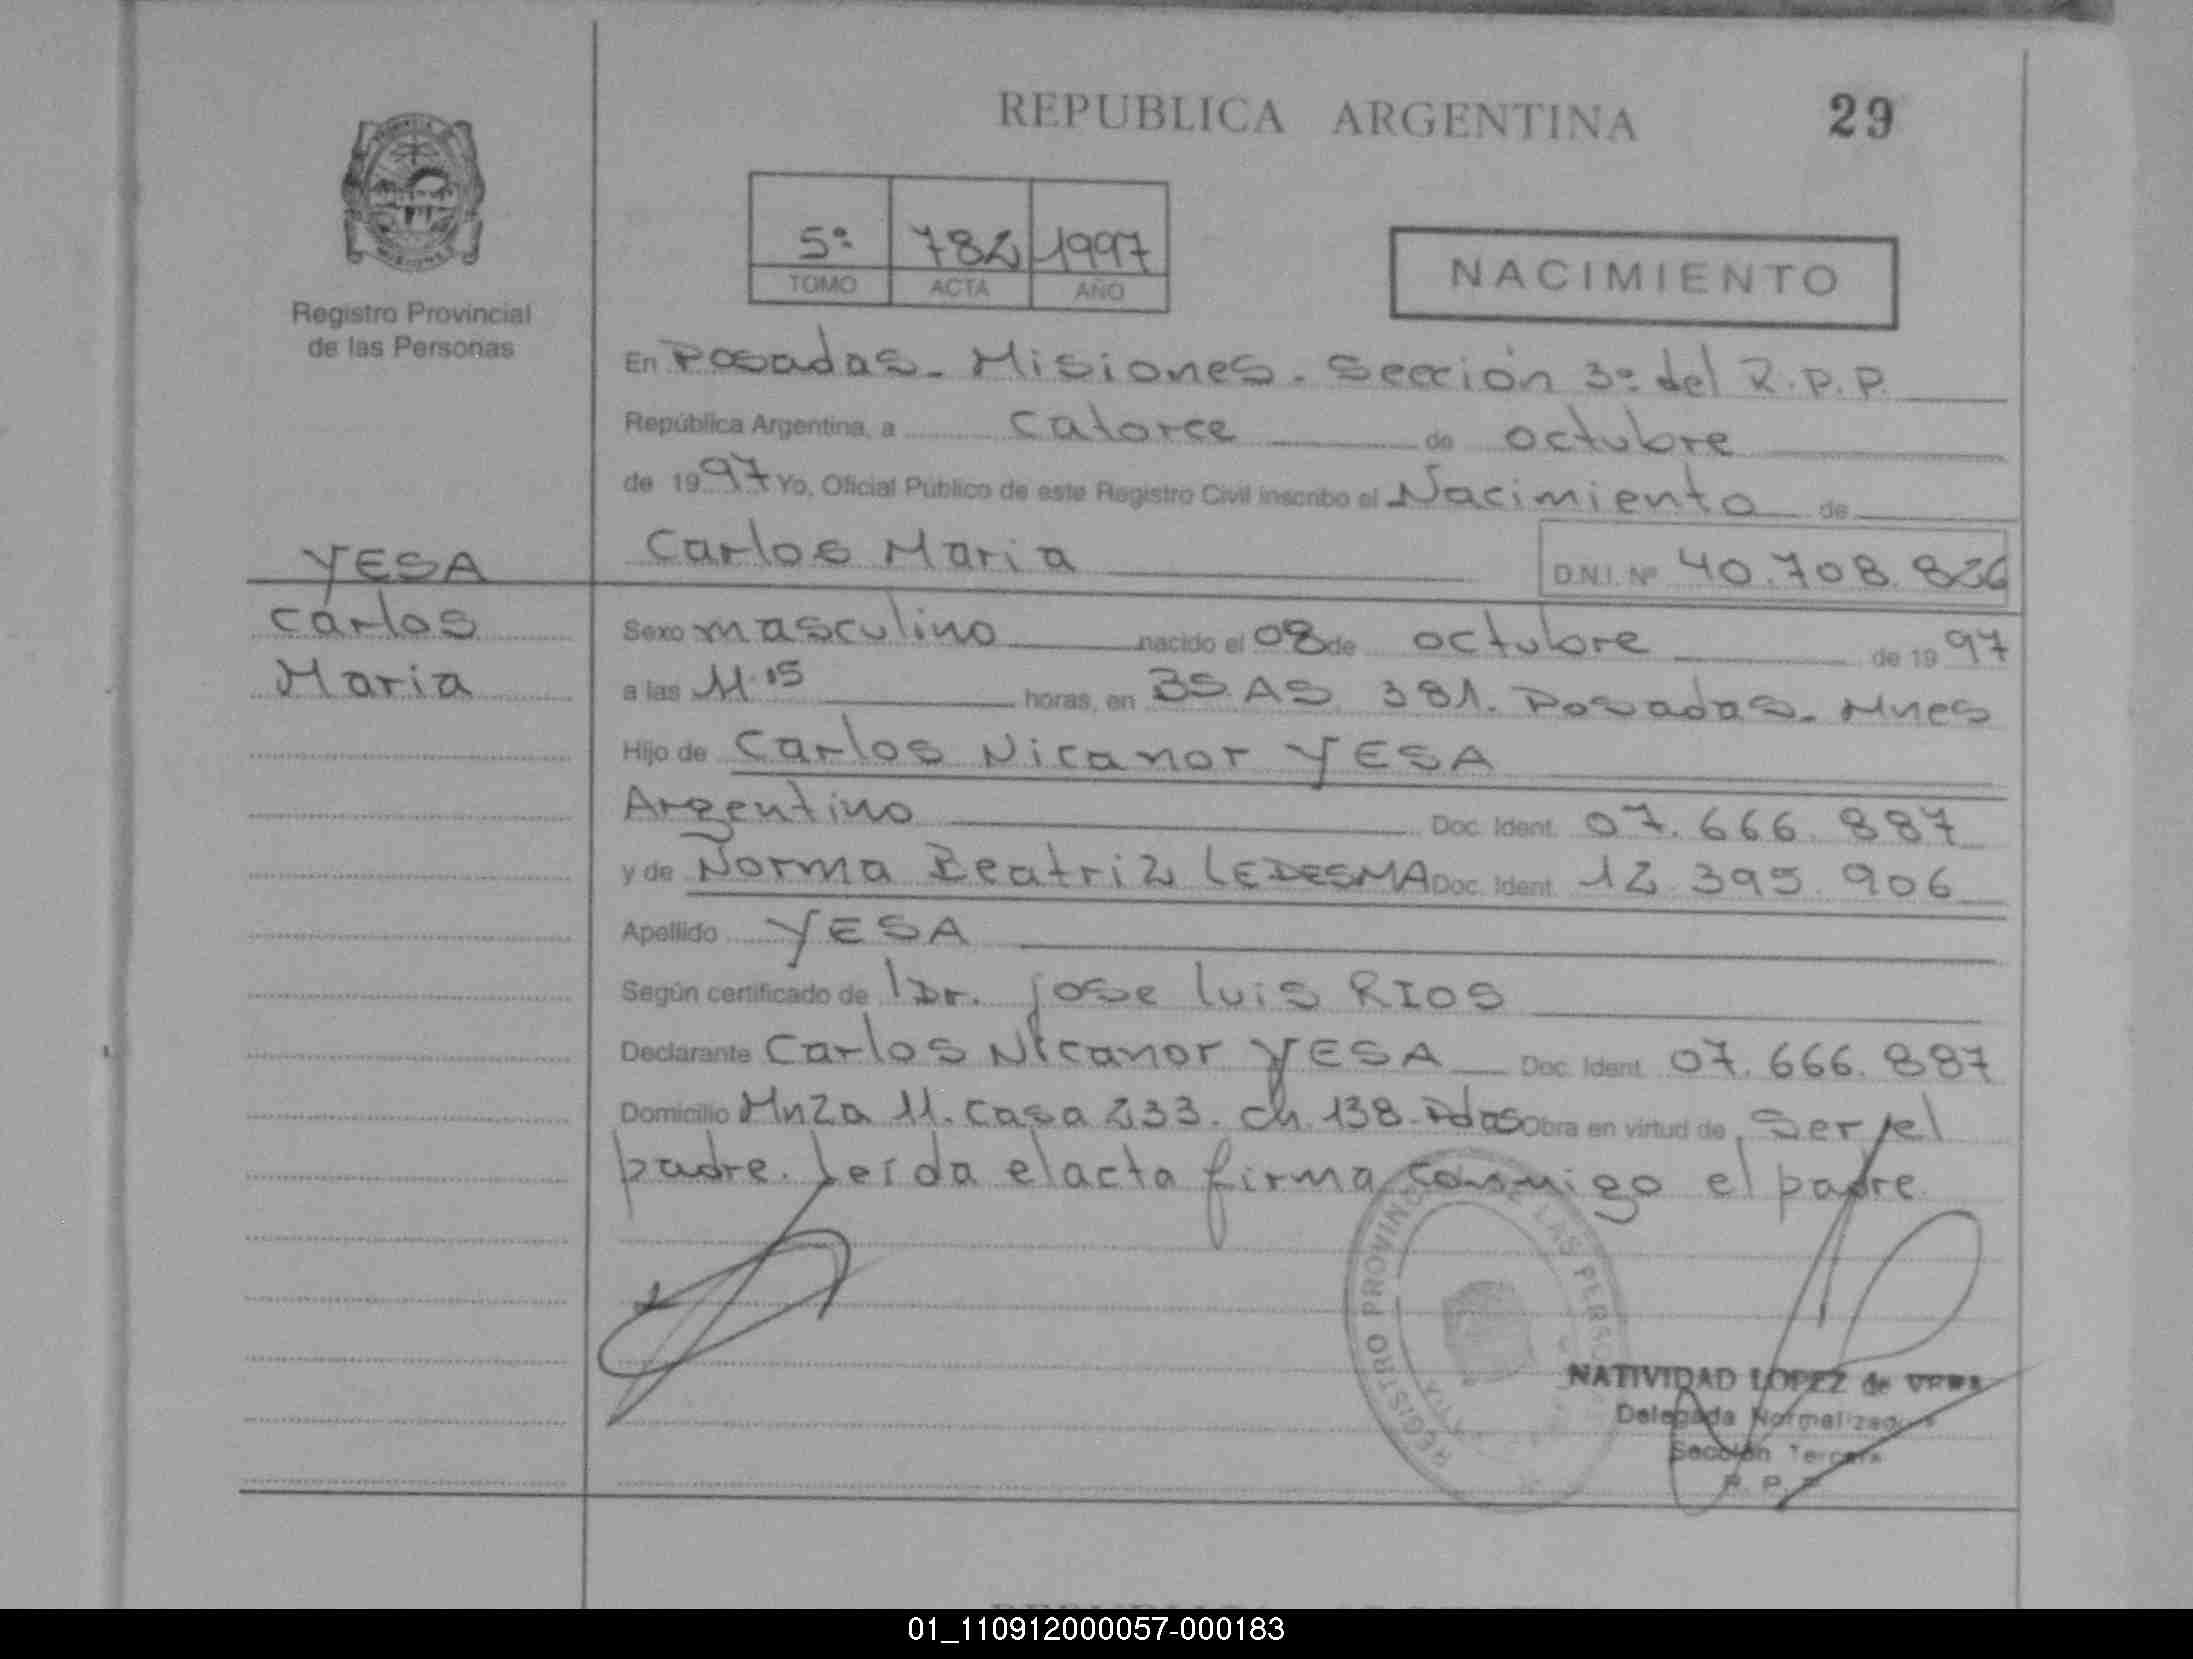 REPUBLICA ARGENTINA
29
5º 782 1997
TOMO ACTA AÑO
NACIMIENTO
Registro Provincial
de las Personas
En Posadas. Misiones. Sección 3º del R.P.P.
República Argentina, a catorce de octubre
de 1997 Yo, Oficial Público de este Registro Civil inscribo el Nacimiento de
Carlos Maria D.N.I. Nº 40.708.826
YESA
Carlos
Maria
Sexo masculino nacido el 08 de octubre de 1997
a las 11.15 horas, en BS AS 381. Posadas. Mnes
Hijo de Carlos Nicanor YESA
Argentino Doc. Ident. 07.666.887
y de Norma Beatriz LEDESMA Doc. Ident. 12.395.906
Apellido YESA
Según certificado de Dr. jose luis RIOS
Declarante Carlos Nicanor YESA Doc. Ident. 07.666.887
Domicilio Mnza 11. casa 233. ch. 138. Pdas Obra en virtud de ser el
padre. Leida el acta firma conmigo el padre
REGISTRO PROVINCIAL DE LAS
NATIVIDAD LOPEZ de
Delegada Normalizadora
Sección Tercera
R. P. P.
01_110912000057-000183